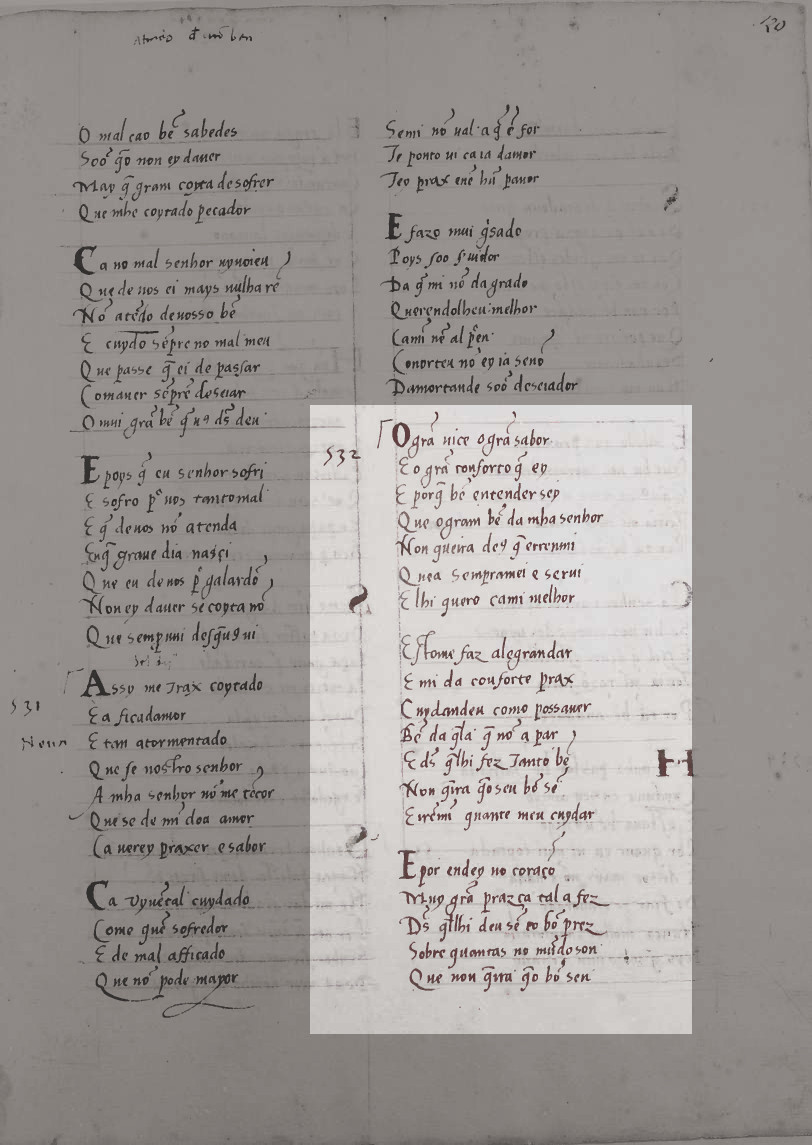 O mal ca o bẽ sabedes
Soõ q̃o non ey dauer
May q̃ gram coyta de sofrer
Que mhe coytado pecador
Ca no mal senhor uyuoieu
Que de uos ei mays nulha rẽ
Nõ atẽdo de uosso bẽ
E cuydo sẽpre no mal meu
Que passe q̃ ei de passar
Com auer sẽpre deseiar
O mui grã bẽ q̃ u9 ds̃ deu
E poys q̃ eu senhor sofri
E sofro p̃ uos tanto mal
E q̃ de uos nõ atenda
En q̃ graue dia nasçi
Que eu de uos p̃ galardõ
Non ey dauer se coyta nõ
Que sempr ouui des q̃ u9 ui
531
Assy me trax coytado
E a ficad amor
E tan atormentado
Que se nostro senhor
A mha senhor nõ me te cor
Que se de mĩ doa amor
Ca uerey praxer e sabor
Ca uyu ẽ tal cuydado
Come quẽ sofredor
E de mal afficado
Que nõ pode mayor
Se mi nõ ual a q̃ ẽ
for
Te ponto ui ca ia da mor
Tey prax e nẽhũ pauor
E fazo mui g'sado
Poys soo s'uidor
Da q̃ mi nõ da grado
Querendolheu melhor
Ca mĩ nẽ al p̃ en
Conorteu nõ ey ia senõ
Da mort ande soõ deseiador
532
O grã uice o grã sabor
E o grã conforto q̃ ey
E porq̃ bẽ entender sey
Que o gram bẽ da mha senhor
Non queira de9 q̃ err en mi
Que a sempr amei e serui
E lhi quero ca mi melhor
Esto me faz alegr andar
E mi da conforte prax
Cuydandeu como possauer
Bẽ da q̃la q̃ nõ a par
E ds̃ q̃ lhi fez tanto bẽ
Non q̃ira q̃ o seu bõ sẽ
Eirẽ mĩ quante meu cuydar
E por end ey no coraçõ
Muy grã praz ca tal a fez
Ds̃ q̃ lhi deu sẽ e o bõ prez
Sobre quantas no mũdo son
Que non q̃ira q̃ o bõ sen